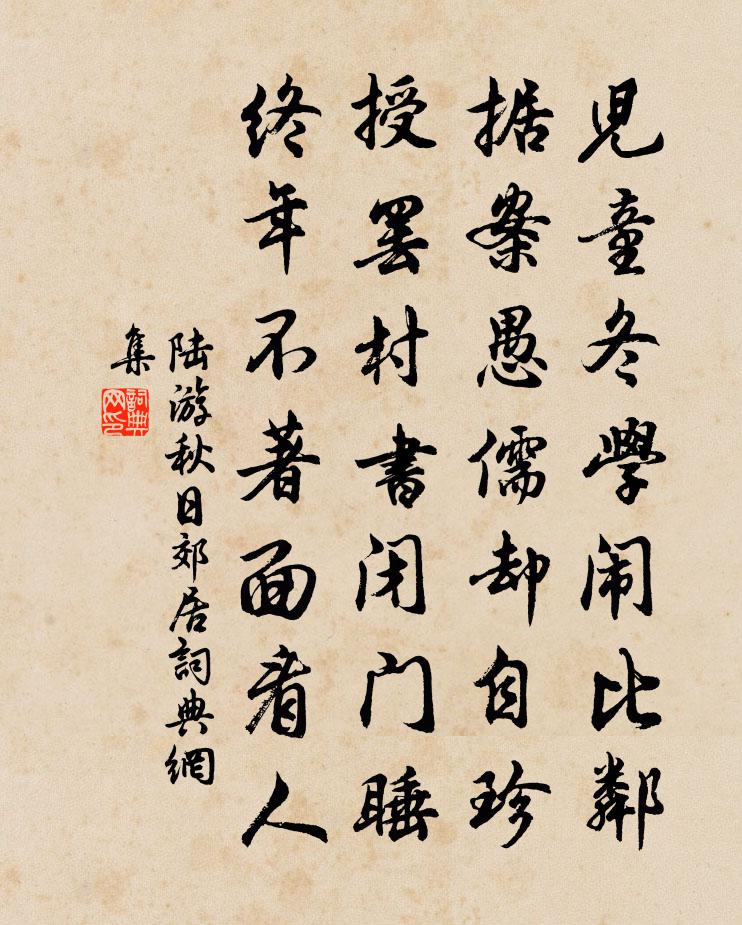 児童冬學闹比鄰
据案愚儒却自珍
授罢村書闭门睡
終年不著面看人
陆游秋日郊居詞典網
集
詞典网印